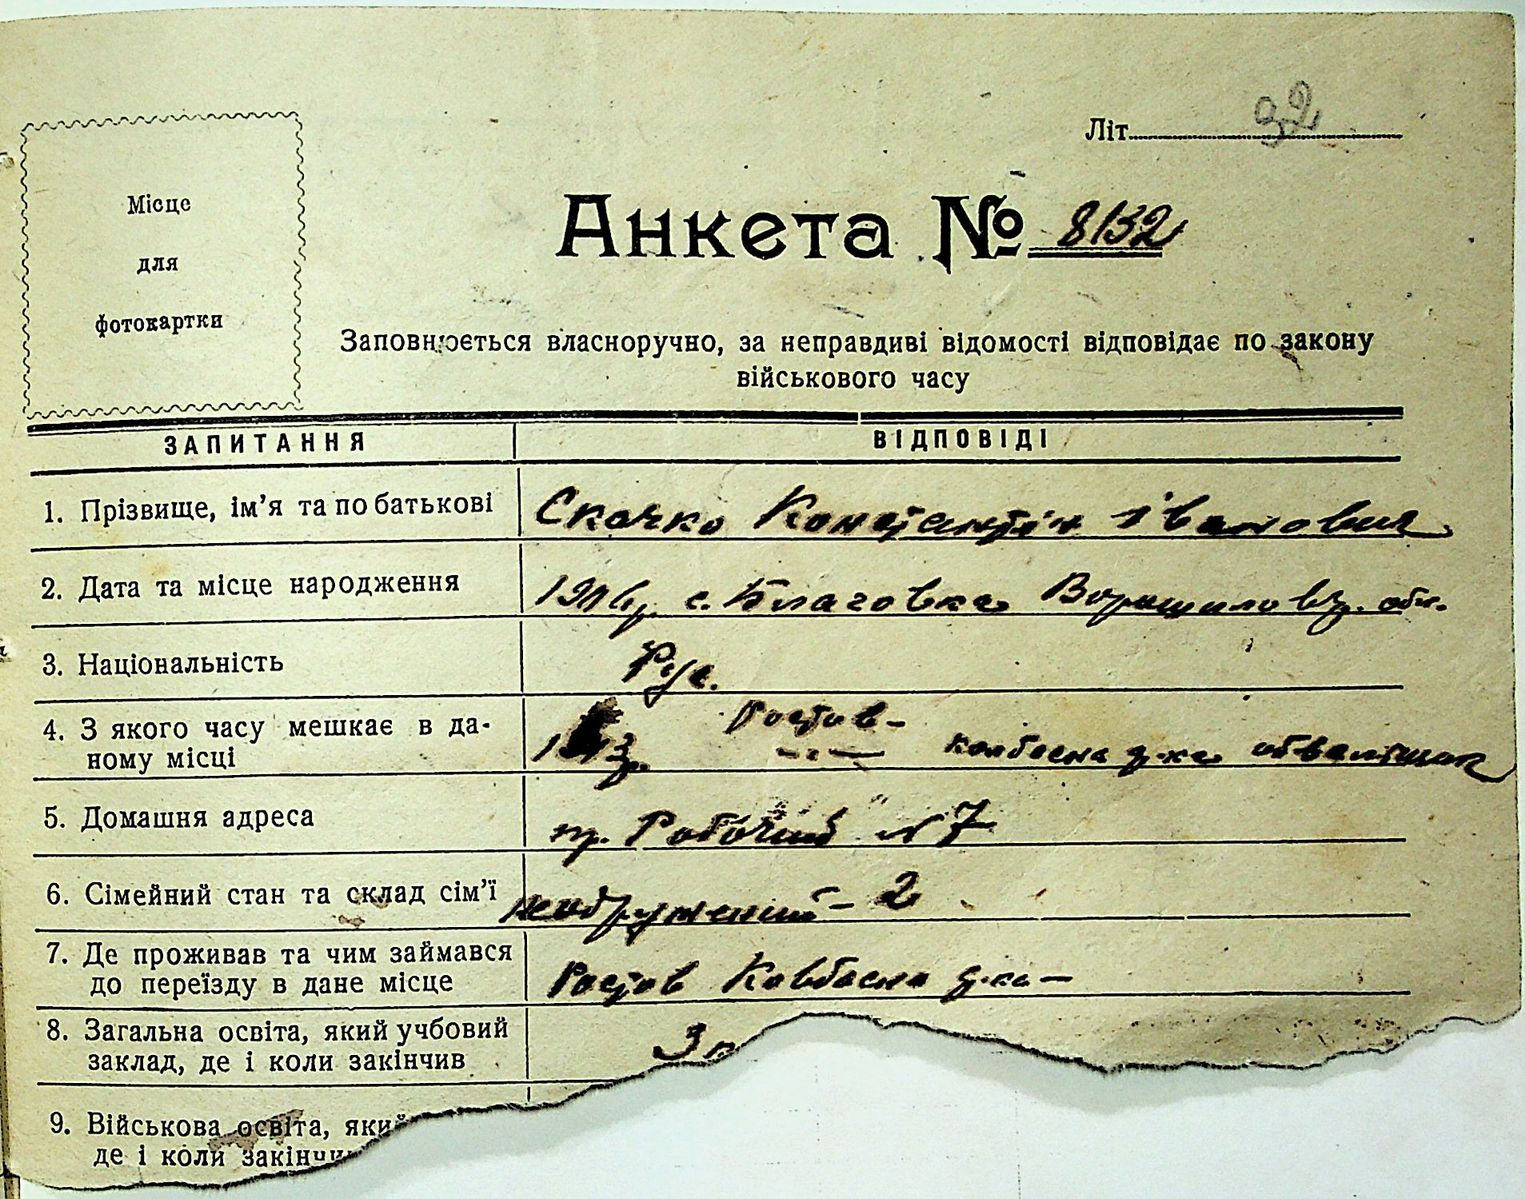 Літ. 32
Місце
для
фотокартки
Анкета № 8132
Заповнюється власноручно, за неправдиві відомості відповідає по закону
військового часу
ЗАПИТАННЯ ВІДПОВІДІ
1. Прізвище, ім'я та по батькові Скачко Константін Іванович
2. Дата та місце народження с. Благовка Ворошиловгр. обл.
3. Національність Рус.
4. З якого часу мешкає в да- Ростов-
ному місці колбасна обвалщик
5. Домашня адреса пр. Робочий № 7
6. Сімейний стан та склад сім'ї – 2
7. Де проживав та чим займався
до переїзду в дане місце Ростов Ковбасна
8. Загальна освіта, який учбовий 3
заклад, де і коли закінчив
9. Військова освіта, який
де і коли закінчи